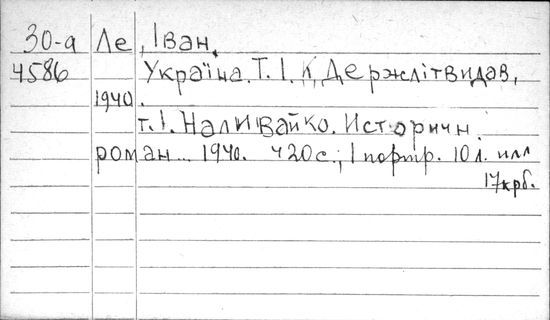 30-а Ле, Іван.
4586 Україна. Т. І. К, Держлітвидав,
1940.
т. І. Наливайко. Историчн.
роман... 1940. 420 с., 1 портр. 10 л. илл
17 крб.